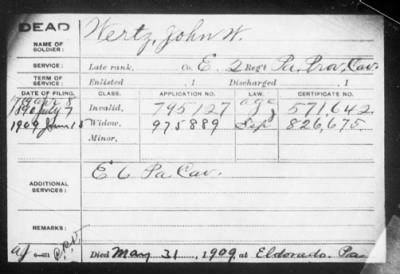 DEAD
Wertz, John W.
NAME OF SOLDIER:
SERVICE: Late rank, Co. E. 2 Reg't Pa. Prov. Cav.
TERM OF SERVICE: Enlisted , 1 Discharged , 1
DATE OF FILING. CLASS. APPLICATION NO. LAW. CERTIFICATE NO.
July 7 Invalid, 795127 571,642
1909 June 15 Widow, 975889 Sep 826,675.
Minor,
E 6 Pa Cav.
ADDITIONAL SERVICES:
REMARKS:
Died May 31, 1909, at Eldorado. Pa